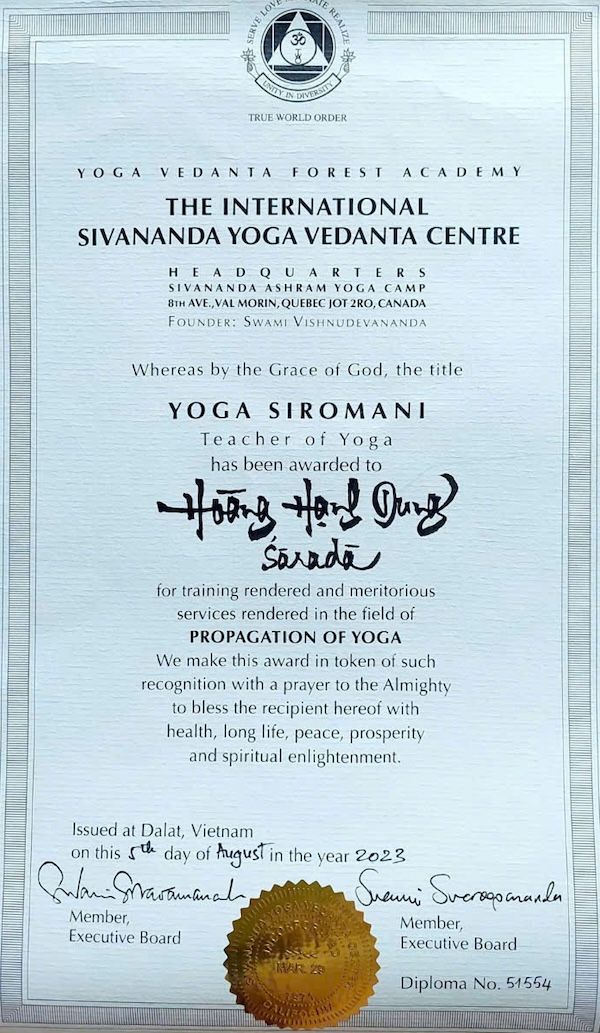 SERVE LOVE REALIZE
UNITY IN DIVERSITY
TRUE WORLD ORDER
YOGA VEDANTA FOREST ACADEMY
THE INTERNATIONAL
SIVANANDA YOGA VEDANTA CENTRE
HEADQUARTERS
SIVANANDA ASHRAM YOGA CAMP
8TH AVE., VAL MORIN, QUEBEC JOT 2RO, CANADA
FOUNDER: SWAMI VISHNUDEVANANDA
Whereas by the Grace of God, the title
YOGA SIROMANI
Teacher of Yoga
has been awarded to
Hoàng Hạnh Dung
Śāradā
for training rendered and meritorious
services rendered in the field of
PROPAGATION OF YOGA
We make this award in token of such
recognition with a prayer to the Almighty
to bless the recipient hereof with
health, long life, peace, prosperity
and spiritual enlightenment.
Issued at Dalat, Vietnam
on this 5th day of August in the year 2023
Swami Swaroopananda
Member,
Executive Board
Member,
Executive Board
MAR. 29
Diploma No. 51554